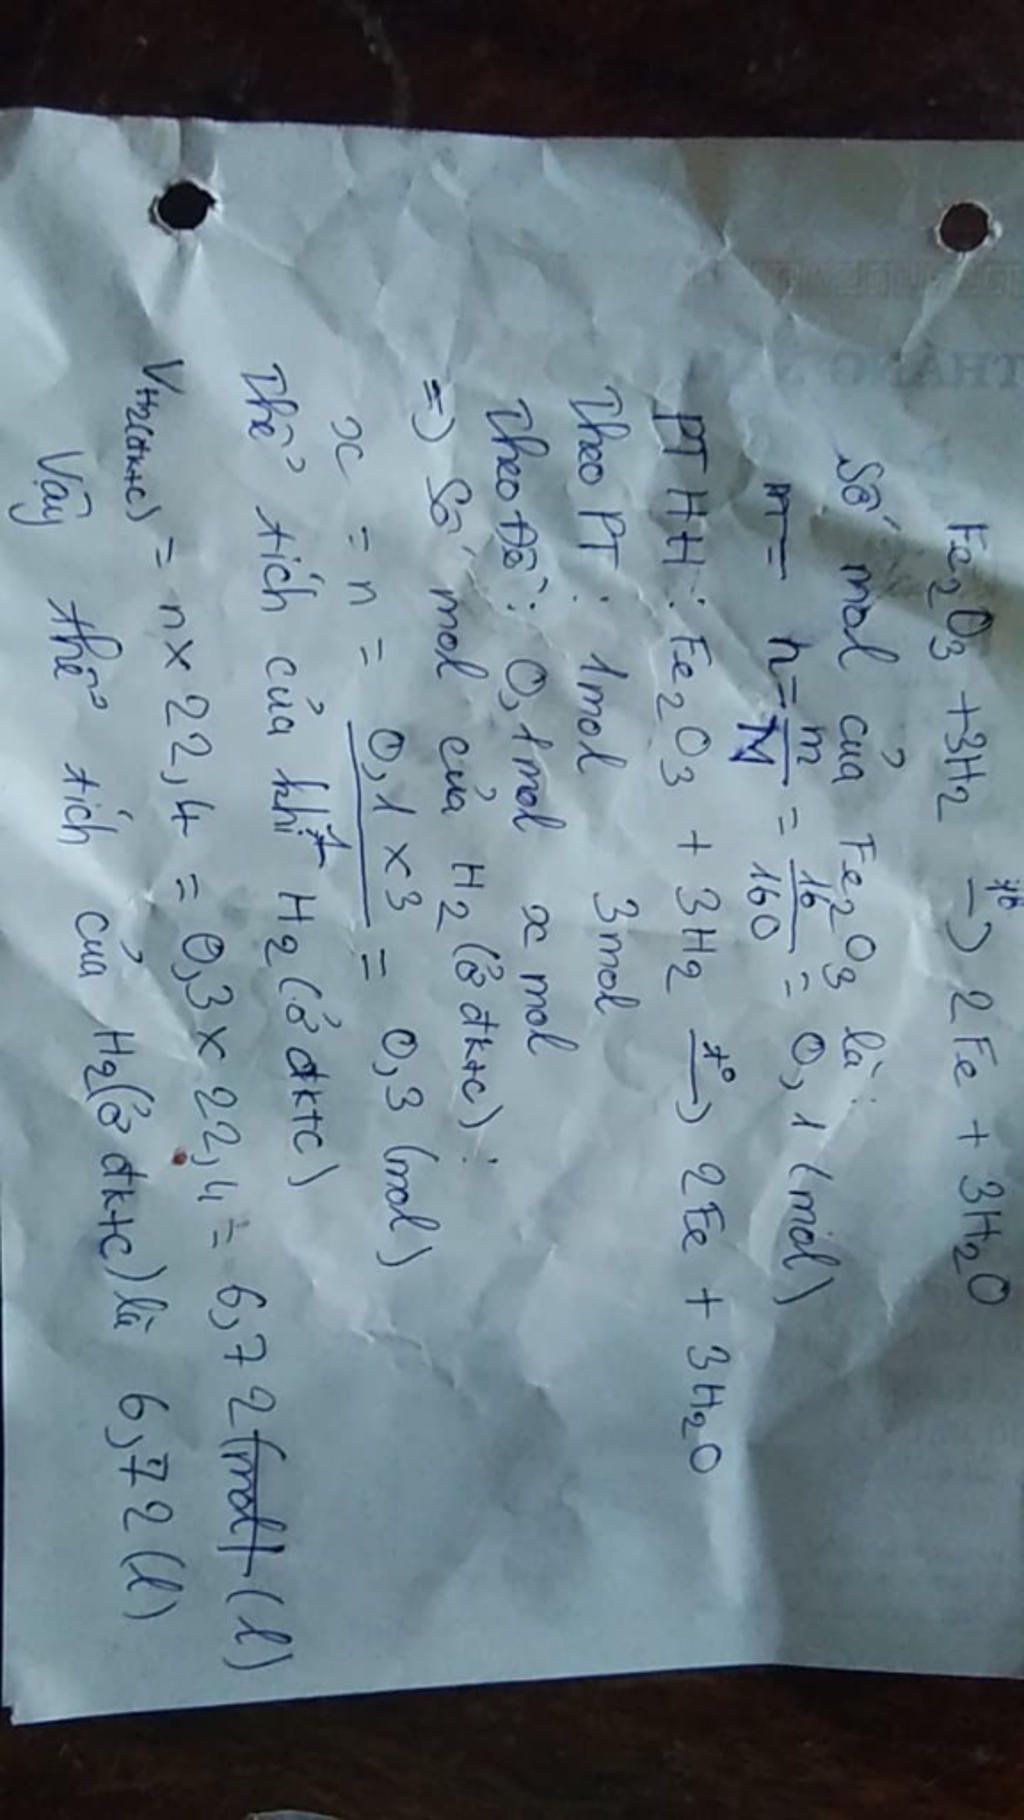 Fe2O3 + 3H2 t° → 2Fe + 3H2O
Số mol của Fe2O3 là:
n = m/M = 16/160 = 0,1 (mol)
PTHH: Fe2O3 + 3H2 t° → 2Fe + 3H2O
Theo PT: 1mol 3mol
Theo Đề: 0,1mol x mol
=> Số mol của H2 (ở đktc):
x = n = 0,1 x 3 = 0,3 (mol)
Thể tích của khí H2 (ở đktc)
VH2(đktc) = n x 22,4 = 0,3 x 22,4 = 6,72 (l)
Vậy thể tích của H2 (ở đktc) là 6,72 (l)